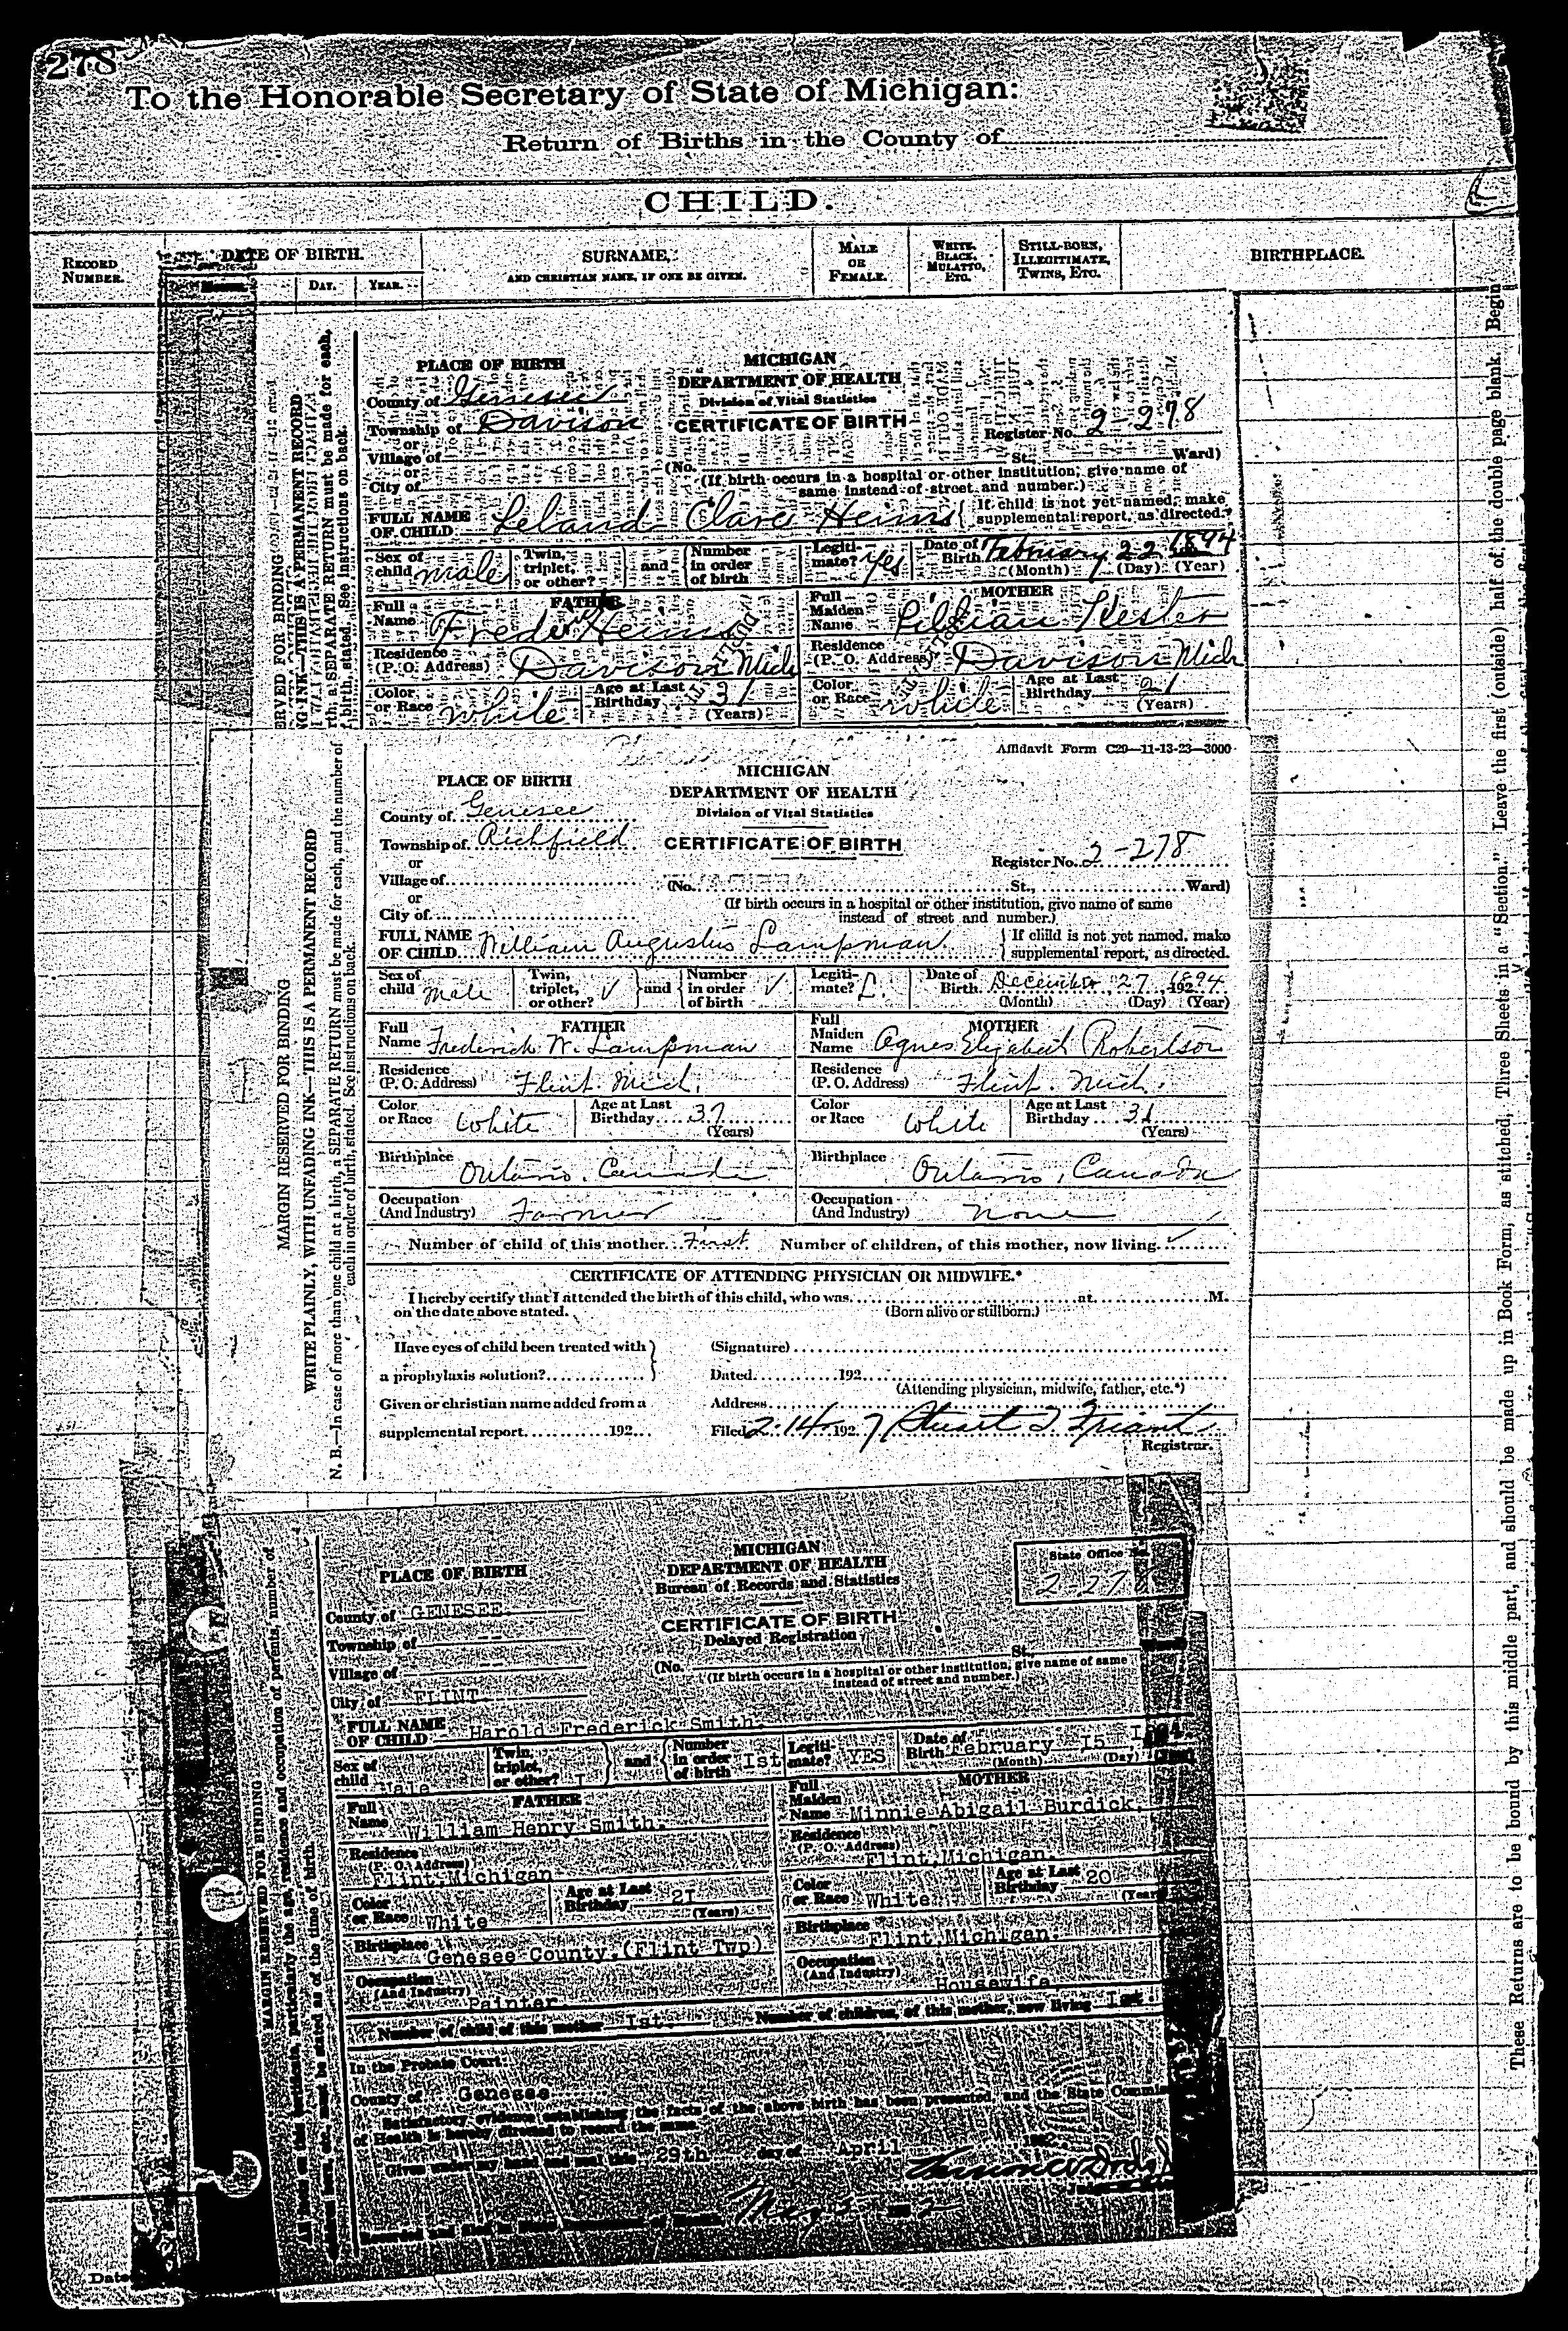 278
To the Honorable Secretary of State of Michigan:
Return of Births in the County of
CHILD.
RECORD NUMBER.
DATE OF BIRTH.
DAY.
YEAR.
SURNAME,
AND CHRISTIAN NAME, IF ONE BE GIVEN.
MALE OR FEMALE.
WHITE, BLACK, MULATTO, ETC.
STILL-BORN, ILLEGITIMATE, TWINS, ETC.
BIRTHPLACE.
PLACE OF BIRTH
MICHIGAN
DEPARTMENT OF HEALTH
Division of Vital Statistics
CERTIFICATE OF BIRTH
County of Genesee
Township of Davison
or
Village of
or
City of
Register No. 2-278
(No. St., Ward)
(If birth occurs in a hospital or other institution, give name of
same instead of street and number.)
FULL NAME OF CHILD Leland Clare Heims
If child is not yet named, make
supplemental report, as directed.
Sex of child male
Twin, triplet, or other?
and
Number in order of birth
Legitimate? yes
Date of Birth February 22 1894
(Month) (Day) (Year)
FATHER
Full Name Fred Heims
MOTHER
Full Maiden Name Lillian Hester
Residence (P. O. Address) Davison Mich
Residence (P. O. Address) Davison Mich
Color or Race White
Age at Last Birthday 31
(Years)
Color or Race White
Age at Last Birthday 21
(Years)
RESERVED FOR BINDING
THIS IS A PERMANENT RECORD
a SEPARATE RETURN must be made for each,
birth, stated. See instructions on back.
Affidavit Form C29—11-13-23—3000
PLACE OF BIRTH
MICHIGAN
DEPARTMENT OF HEALTH
Division of Vital Statistics
CERTIFICATE OF BIRTH
County of Genesee
Township of Richfield
or
Village of
or
City of
Register No. 2-278
(No. St., Ward)
(If birth occurs in a hospital or other institution, give name of same
instead of street and number.)
FULL NAME OF CHILD William Augustus Lampman
If child is not yet named, make
supplemental report, as directed.
Sex of child Male
Twin, triplet, or other? ✓
and
Number in order of birth ✓
Legitimate? L.
Date of Birth December 27 1894
(Month) (Day) (Year)
FATHER
Full Name Frederick W. Lampman
MOTHER
Full Maiden Name Agnes Elizabeth Robertson
Residence (P. O. Address) Flint. Mich.
Residence (P. O. Address) Flint. Mich.
Color or Race White
Age at Last Birthday 37
(Years)
Color or Race White
Age at Last Birthday 31
(Years)
Birthplace Ontario, Canada
Birthplace Ontario, Canada
Occupation (And Industry) Farmer
Occupation (And Industry) None
Number of child of this mother First
Number of children, of this mother, now living ✓
CERTIFICATE OF ATTENDING PHYSICIAN OR MIDWIFE.*
I hereby certify that I attended the birth of this child, who was at M.
on the date above stated. (Born alive or stillborn.)
Have eyes of child been treated with
a prophylaxis solution?
(Signature)
Dated 192
(Attending physician, midwife, father, etc.*)
Given or christian name added from a
supplemental report 192
Address
Filed 2-14- 1927 Stuart T Friant
Registrar.
MARGIN RESERVED FOR BINDING
WRITE PLAINLY, WITH UNFADING INK—THIS IS A PERMANENT RECORD
N. B.—In case of more than one child at a birth, a SEPARATE RETURN must be made for each, and the number of
each in order of birth, stated. See instructions on back.
PLACE OF BIRTH
MICHIGAN
DEPARTMENT OF HEALTH
Bureau of Records and Statistics
CERTIFICATE OF BIRTH
Delayed Registration
State Office
2 278
County of GENESEE
Township of --
Village of --
City of FLINT
(No. St.,
(If birth occurs in a hospital or other institution, give name of same
instead of street and number.)
FULL NAME OF CHILD Harold Frederick Smith.
Sex of child Male
Twin, triplet, or other? I
and
Number in order of birth Ist
Legitimate? YES
Date of Birth February 15
(Month) (Day)
FATHER
Full Name William Henry Smith.
MOTHER
Full Maiden Name Minnie Abigail Burdick.
Residence (P. O. Address) Flint,Michigan
Residence (P. O. Address) Flint,Michigan.
Color or Race White
Age at Last Birthday 2I
(Years)
Color or Race White
Age at Last Birthday 20
(Years)
Birthplace Genesee County.(Flint Twp)
Birthplace Flint,Michigan.
Occupation (And Industry) Painter
Occupation (And Industry) Housewife
Number of child of this mother Ist.
Number of children, of this mother, now living Ist
In the Probate Court:
County of Genesee
Satisfactory evidence establishing the facts of the above birth has been presented, and the State
of Health is hereby directed to record the same.
Given under my hand and seal this 29th day of April
MARGIN RESERVED FOR BINDING
These Returns are to be bound by this middle part, and should be made up in Book Form, as stitched, Three Sheets in a "Section." Leave the first (outside) half of the double page blank. Begin
Date